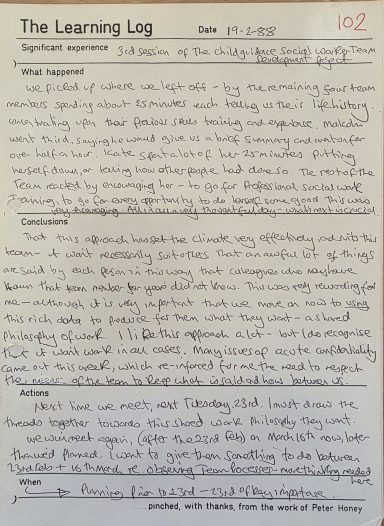 The Learning Log Date 19-2-88 102
Significant experience 3rd session of The child guidance Social Worker Team
Development Project
What happened
We picked up where we left off - by the remaining four team
members spending about 25 minutes each telling us their life history.
concentrating upon their previous skills training and experience. Malcolm
went third, saying he would give us a brief summary and went on for
over half an hour. Kate spent a lot of her 25 minutes putting
herself down, or telling how other people had done so. The rest of the
Team reacted by encouraging her - to go for Professional social work
Training, to go for every opportunity to do herself some good. This was
very encouraging. All in all a very thoughtful day - what next is crucial
Conclusions
That this approach has set the climate very effectively, and suits this
team - it wont necessarily suit others. That an awful lot of things
are said by each person in this way that colleagues who may have
known that team member for years did not know. This was very rewarding for
me - although it is very important that we move on now to using
this rich data to produce for them what they want - a shared
philosophy of work. I like this approach a lot - but I do recognise
that it wont work in all cases. Many issues of acute confidentiality
came out this week, which re-inforced for me the need to respect
the of the team to keep what is said and how between us.
Actions
Next time we meet, next Tuesday, 23rd. I must draw the
threads together towards this shared work Philosophy they want.
We will meet again, (after the 23rd Feb) on March 16th now, later
than we'd planned. I want to give them something to do between
23rd Feb + 16th March re. observing Team-Processes - more thinking needed
here
When Planning prior to 23rd - 23rd of key importance
....pinched, with thanks, from the work of Peter Honey